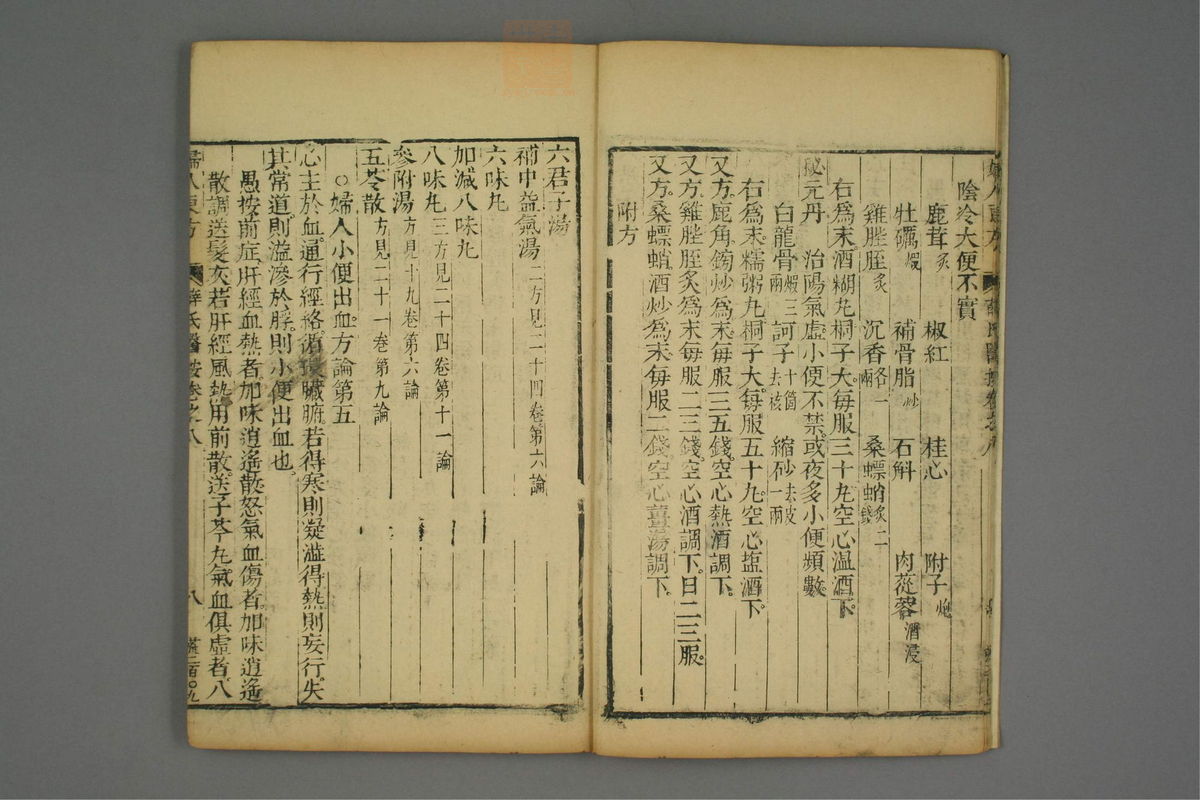 陰冷大便不實
鹿茸炙 椒紅 桂心 附子炮
牡礪煆 補骨脂炒 石斛 肉蓯蓉酒浸
雞膍胵炙 沉香各一兩 桑螵蛸炙二錢
右爲末酒糊丸桐子大每服三十丸空心溫酒下
秘元丹 治陽氣虛小便不禁或夜多小便頻數
白龍骨煆三兩 訶子十箇去核 縮砂去皮一兩
右爲末糯粥丸桐子大每服五十丸空心塩酒下
又方鹿角鎊炒爲末每服三五錢空心熱酒調下
又方雞膍胵炙爲末每服二三錢空心酒調下日二三服
又方桑螵蛸酒炒爲末每服二錢空心薑湯調下
附方
六君子湯
補中益氣湯二方見二十四卷第六論
六味丸
加減八味丸
八味丸三方見二十四卷第十一論
參附湯方見十九卷第六論
五苓散方見二十一卷第九論
○婦人小便出血方論第五
心主於血通行經絡循環臟腑若得寒則凝澁得熱則妄行失
其常道則溢滲於脬則小便出血也
愚按前症肝經血熱者加味逍遙散怒氣血傷者加味逍遙
散調送髮灰若肝經風熱用前散送子芩丸氣血俱虛者八
薛氏醫按卷之八
八